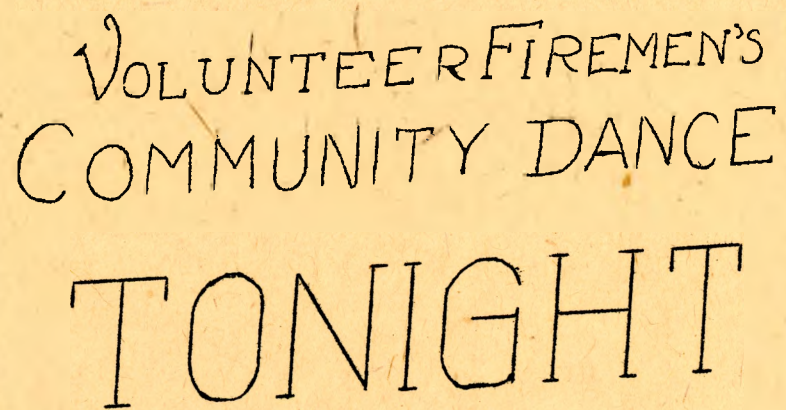 VOLUNTEER FIREMEN'S
COMMUNITY DANCE
TONIGHT